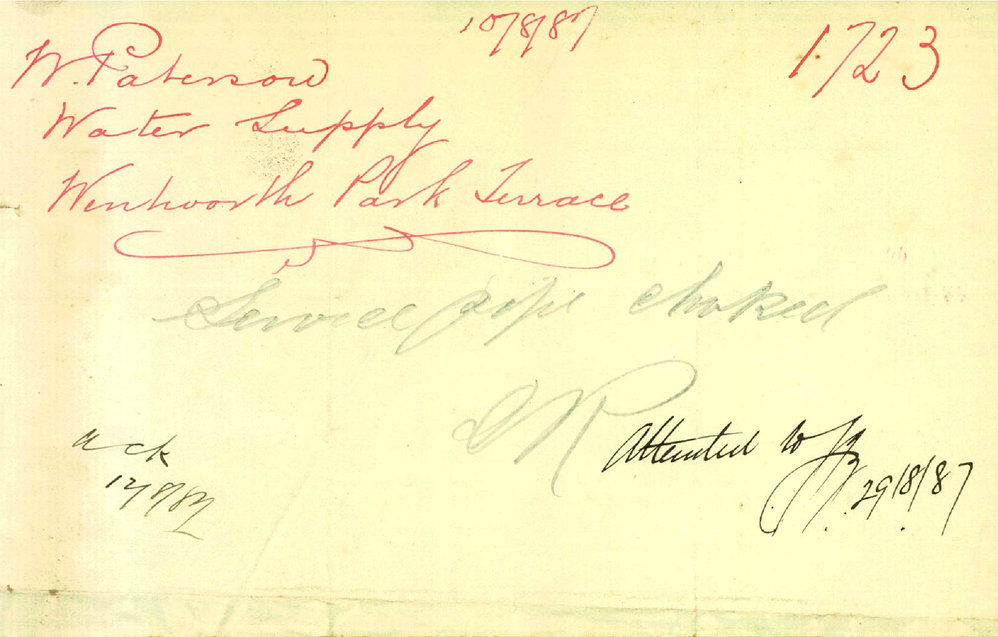 10/8/87
1723
W. Paterson
Water Supply
Wentworth Park Terrace
Service pipe choked
Attended to
29/8/87
ack
12/8/87